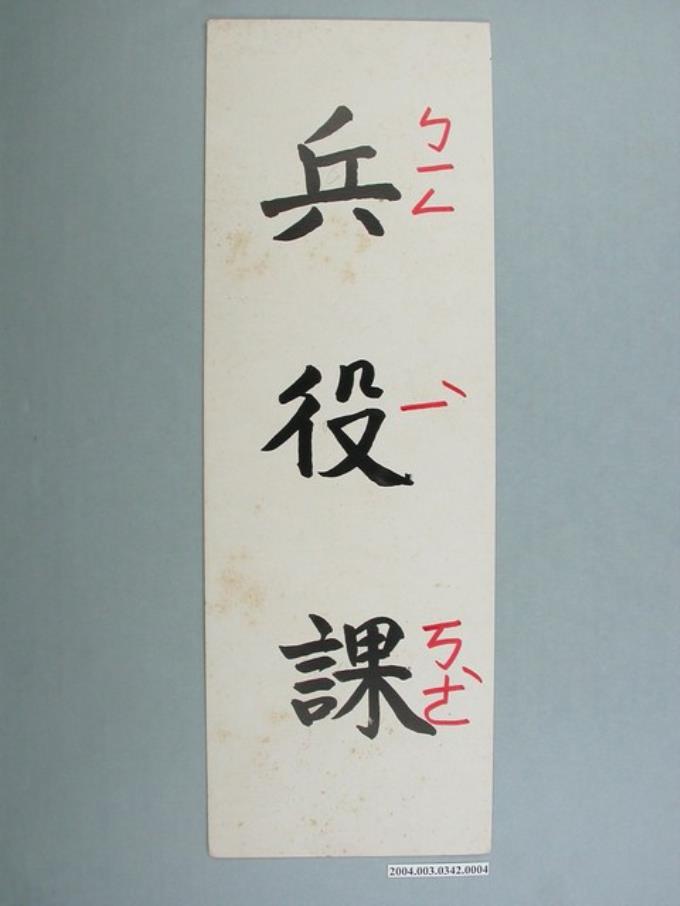 兵役課
ㄅㄧㄥ
ㄧˋ
ㄎㄜˋ
2004.003.0342.0004